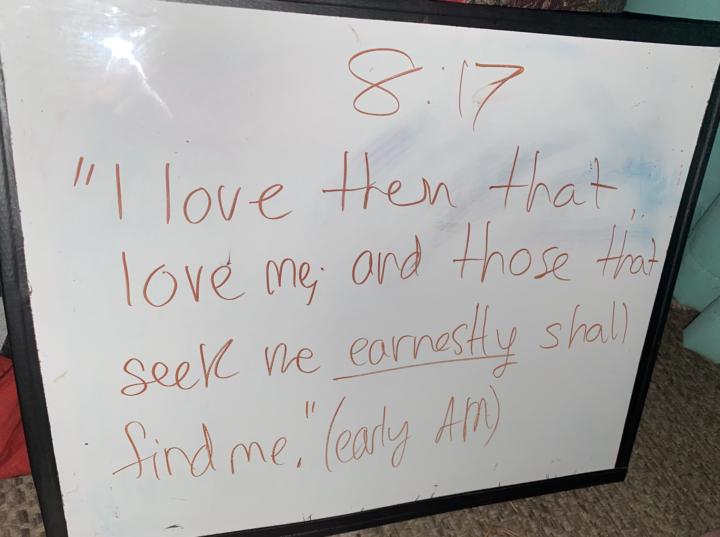 8:17
"I love then that
love me; and those that
seek me earnestly shall
find me." (early AM)